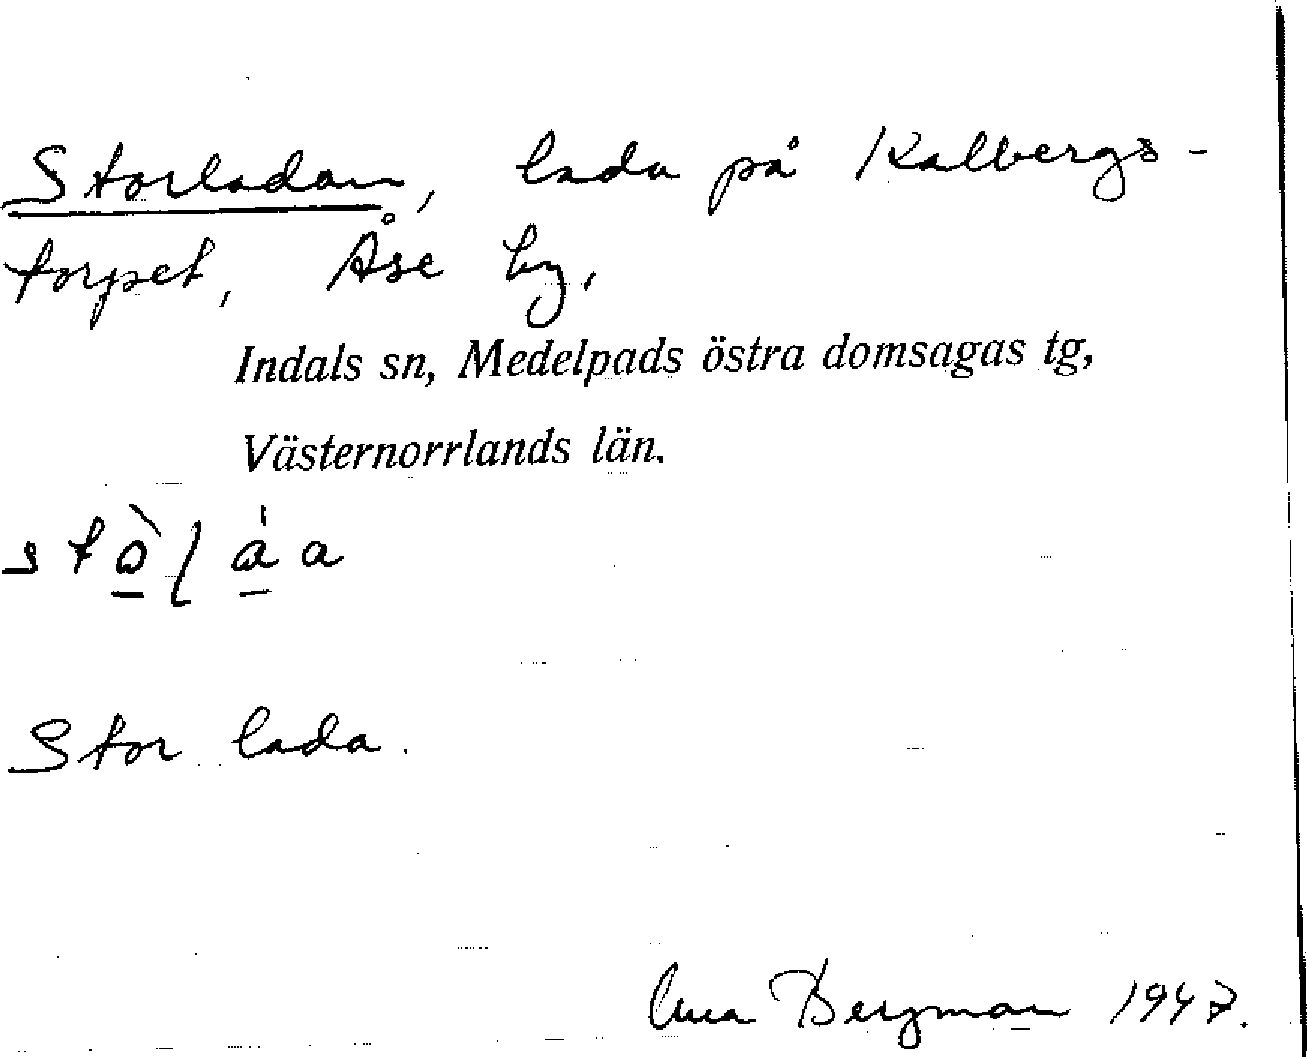 Storladan, lada på Kallbergs-
torpet, Åse by,
Indals sn, Medelpads östra domsagas tg,
Västernorrlands län.
Stor lada.
Bergman 1947.